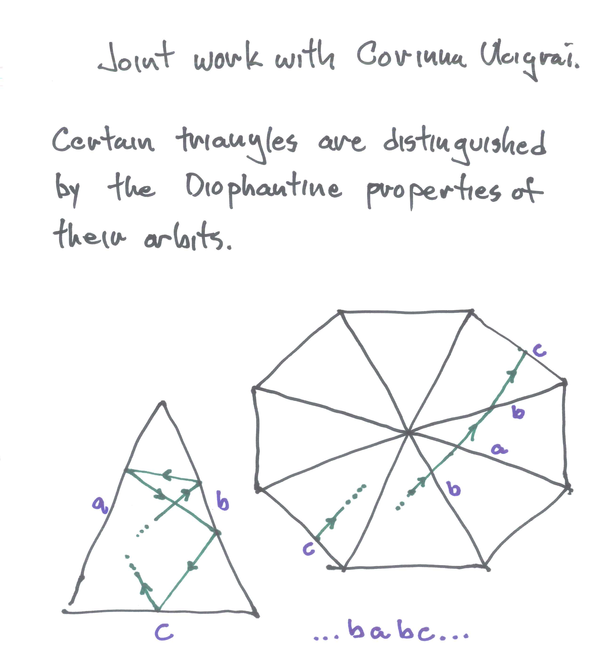 Joint work with Corinna Ulcigrai.
Certain triangles are distinguished
by the Diophantine properties of
their orbits.
c
b
a
a
b
b
c
c
...babc...